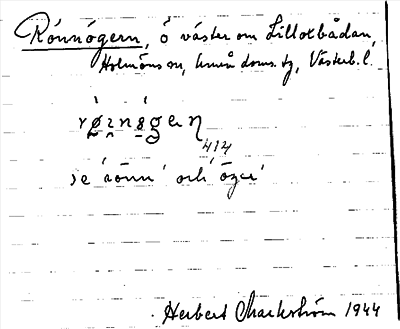 Rönnögern, ö väster om Lillotbådan,
Holmöns sn, Umeå doms. tg, Västerb. l.
414
se 'rönn' och
Herbert Markström 1944